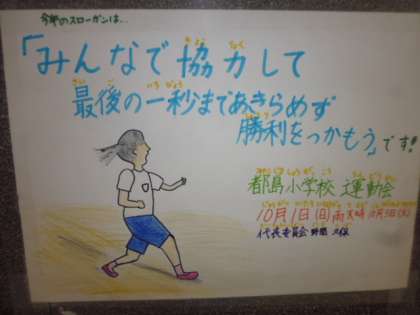 今年のスローガンは…
「みんなで協力して
最後の一秒まであきらめず
勝利をつかもう」です!!
都島小学校 運動会
10月1日(日)雨天時10月3日(火)
代表委員会